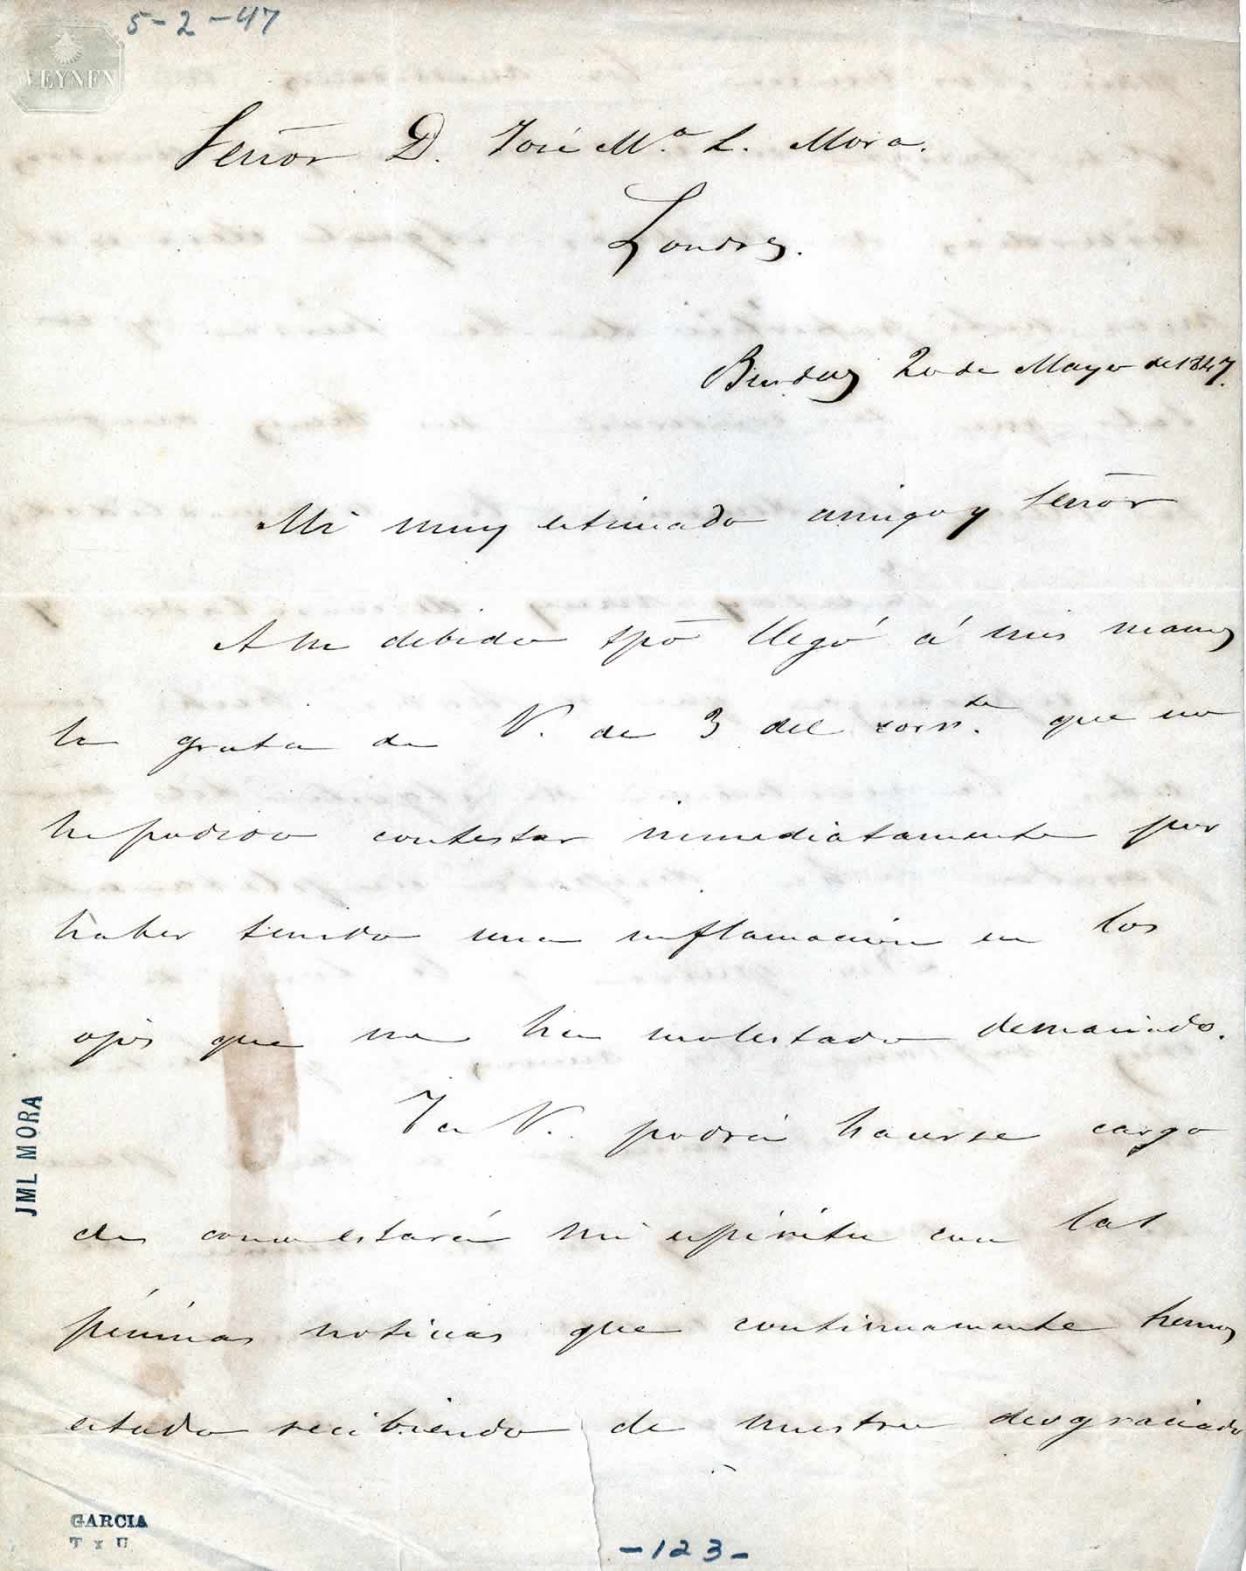 5-2-47
WEYNEN
Señor D. José Mª L. Mora.
Londres.
Burdeos 20 de Mayo de 1847.
Mi muy estimado amigo y Señor
A su debido tpō llegó á mis manos
la grata de V. de 3 del corrⁿᵗᵉ. que no
he podido contestar inmediatamente por
haber tenido una inflamacion en los
ojos que me ha molestado demaciado.
Ya V. podrá hacerse cargo
de como estará mi espíritu con las
pésimas noticias que continuamente hemos
estado recibiendo de nuestro desgraciado
JML MORA
GARCIA
T x U
-123-